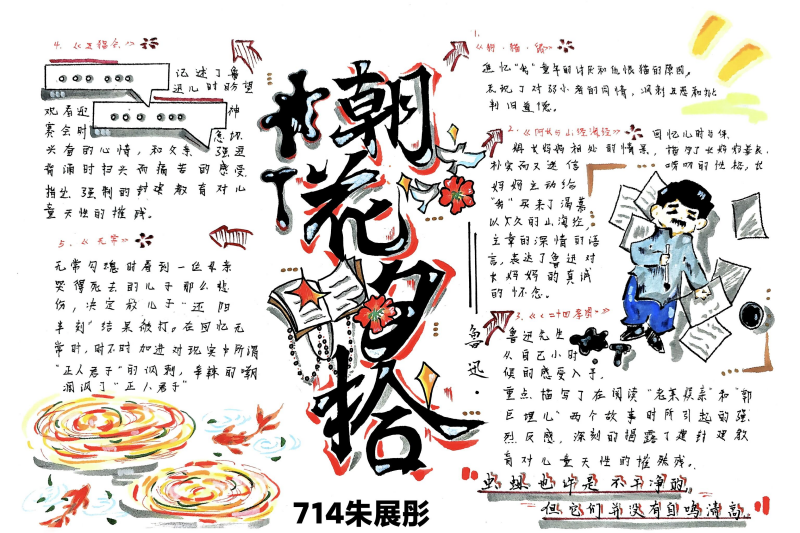 朝花夕拾
鲁迅.
1.
《狗·猫·鼠》
追忆"我"童年的讨厌和仇恨猫的原因,
表现了对弱小者的同情,讽刺
判旧道德。
2.《阿长与山海经》
回忆儿时与保
姆长妈妈相处的情景,描写了长妈妈善良、
朴实而又迷信 唠叨的性格,长
妈妈主动给
"我"买来了渴慕
以久的山海经,
文章的深情的语
言,表达了鲁迅对
长妈妈的真诚
的怀念。
3.《二十四孝图》
鲁迅先生
从自己小时
候的感受入手,
重点描写了在阅读"老莱娱亲"和"郭
巨埋儿"两个故事时所引起的强
烈反感,深刻的揭露了封建教
育对儿童天性的摧残。
4.《五猖会》
记述了鲁
迅儿时盼望
观看迎 神
赛会时 急切、
兴奋的心情,和父亲 强迫
背诵时扫兴而痛苦的感受
指出 强制的封建教育对儿
童天性的摧残。
5.《无常》
无常勾魂时看到一位母亲
哭得死去的儿子那么悲
伤,决定放儿子"还阳
半刻"结果被打。在回忆无
常时,时不时加进对现实中所谓
"正人君子"的讽刺,辛辣的嘲
讽讽了"正人君子"
"虫蛆也许是不干净的,
但它们并没有自鸣清高。"
714朱展彤